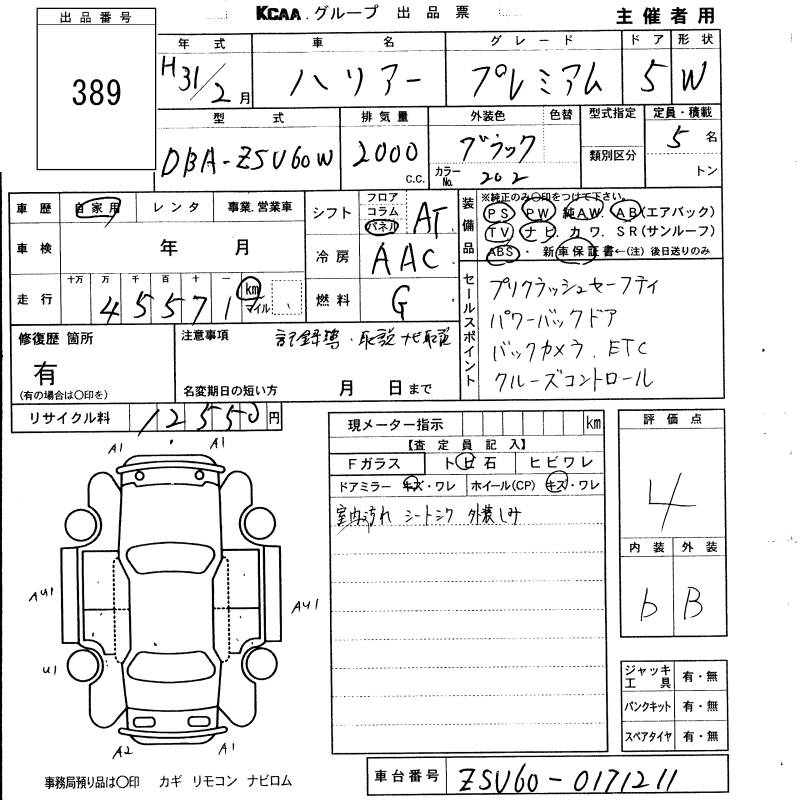 出品番号
389
KCAA グループ 出品票
主催者用
年式 車名 グレード ドア 形状
H31/2月 ハリアー プレミアム 5 W
型式 排気量 外装色 色替 型式指定 定員・積載
DBA-ZSU60W 2000 c.c. ブラック 5名
カラーNo. 202 類別区分 トン
車歴 自家用 レンタ 事業.営業車
車検 年 月
走行 十万 万 千 百 十 一
45571 km マイル
シフト フロア コラム パネル AT
冷房 AAC
燃料 G
装備品
※純正のみ〇印をつけて下さい。
PS PW 純AW AB(エアバック)
TV ナビ.カワ.SR(サンルーフ)
ABS・新車保証書←(注)後日送りのみ
セールスポイント
プリクラッシュセーフティ
パワーバックドア
バックカメラ.ETC
クルーズコントロール
修復歴 箇所
有
(有の場合は〇印を)
注意事項
記録簿・取説 ナビ取説
名変期日の短い方 月 日まで
リサイクル料 12550円
現メーター指示 km
【査定員記入】
Fガラス トビ石 ヒビワレ
ドアミラー キズ・ワレ ホイール(CP) キズ・ワレ
室内汚れ シートシワ 外装しみ
評価点
4
内装 外装
b B
ジャッキ工具 有・無
パンクキット 有・無
スペアタイヤ 有・無
A1 A1
AU1 AU1
U1
A2 A1
事務局預り品は〇印 カギ リモコン ナビロム
車台番号 ZSU60-0171211